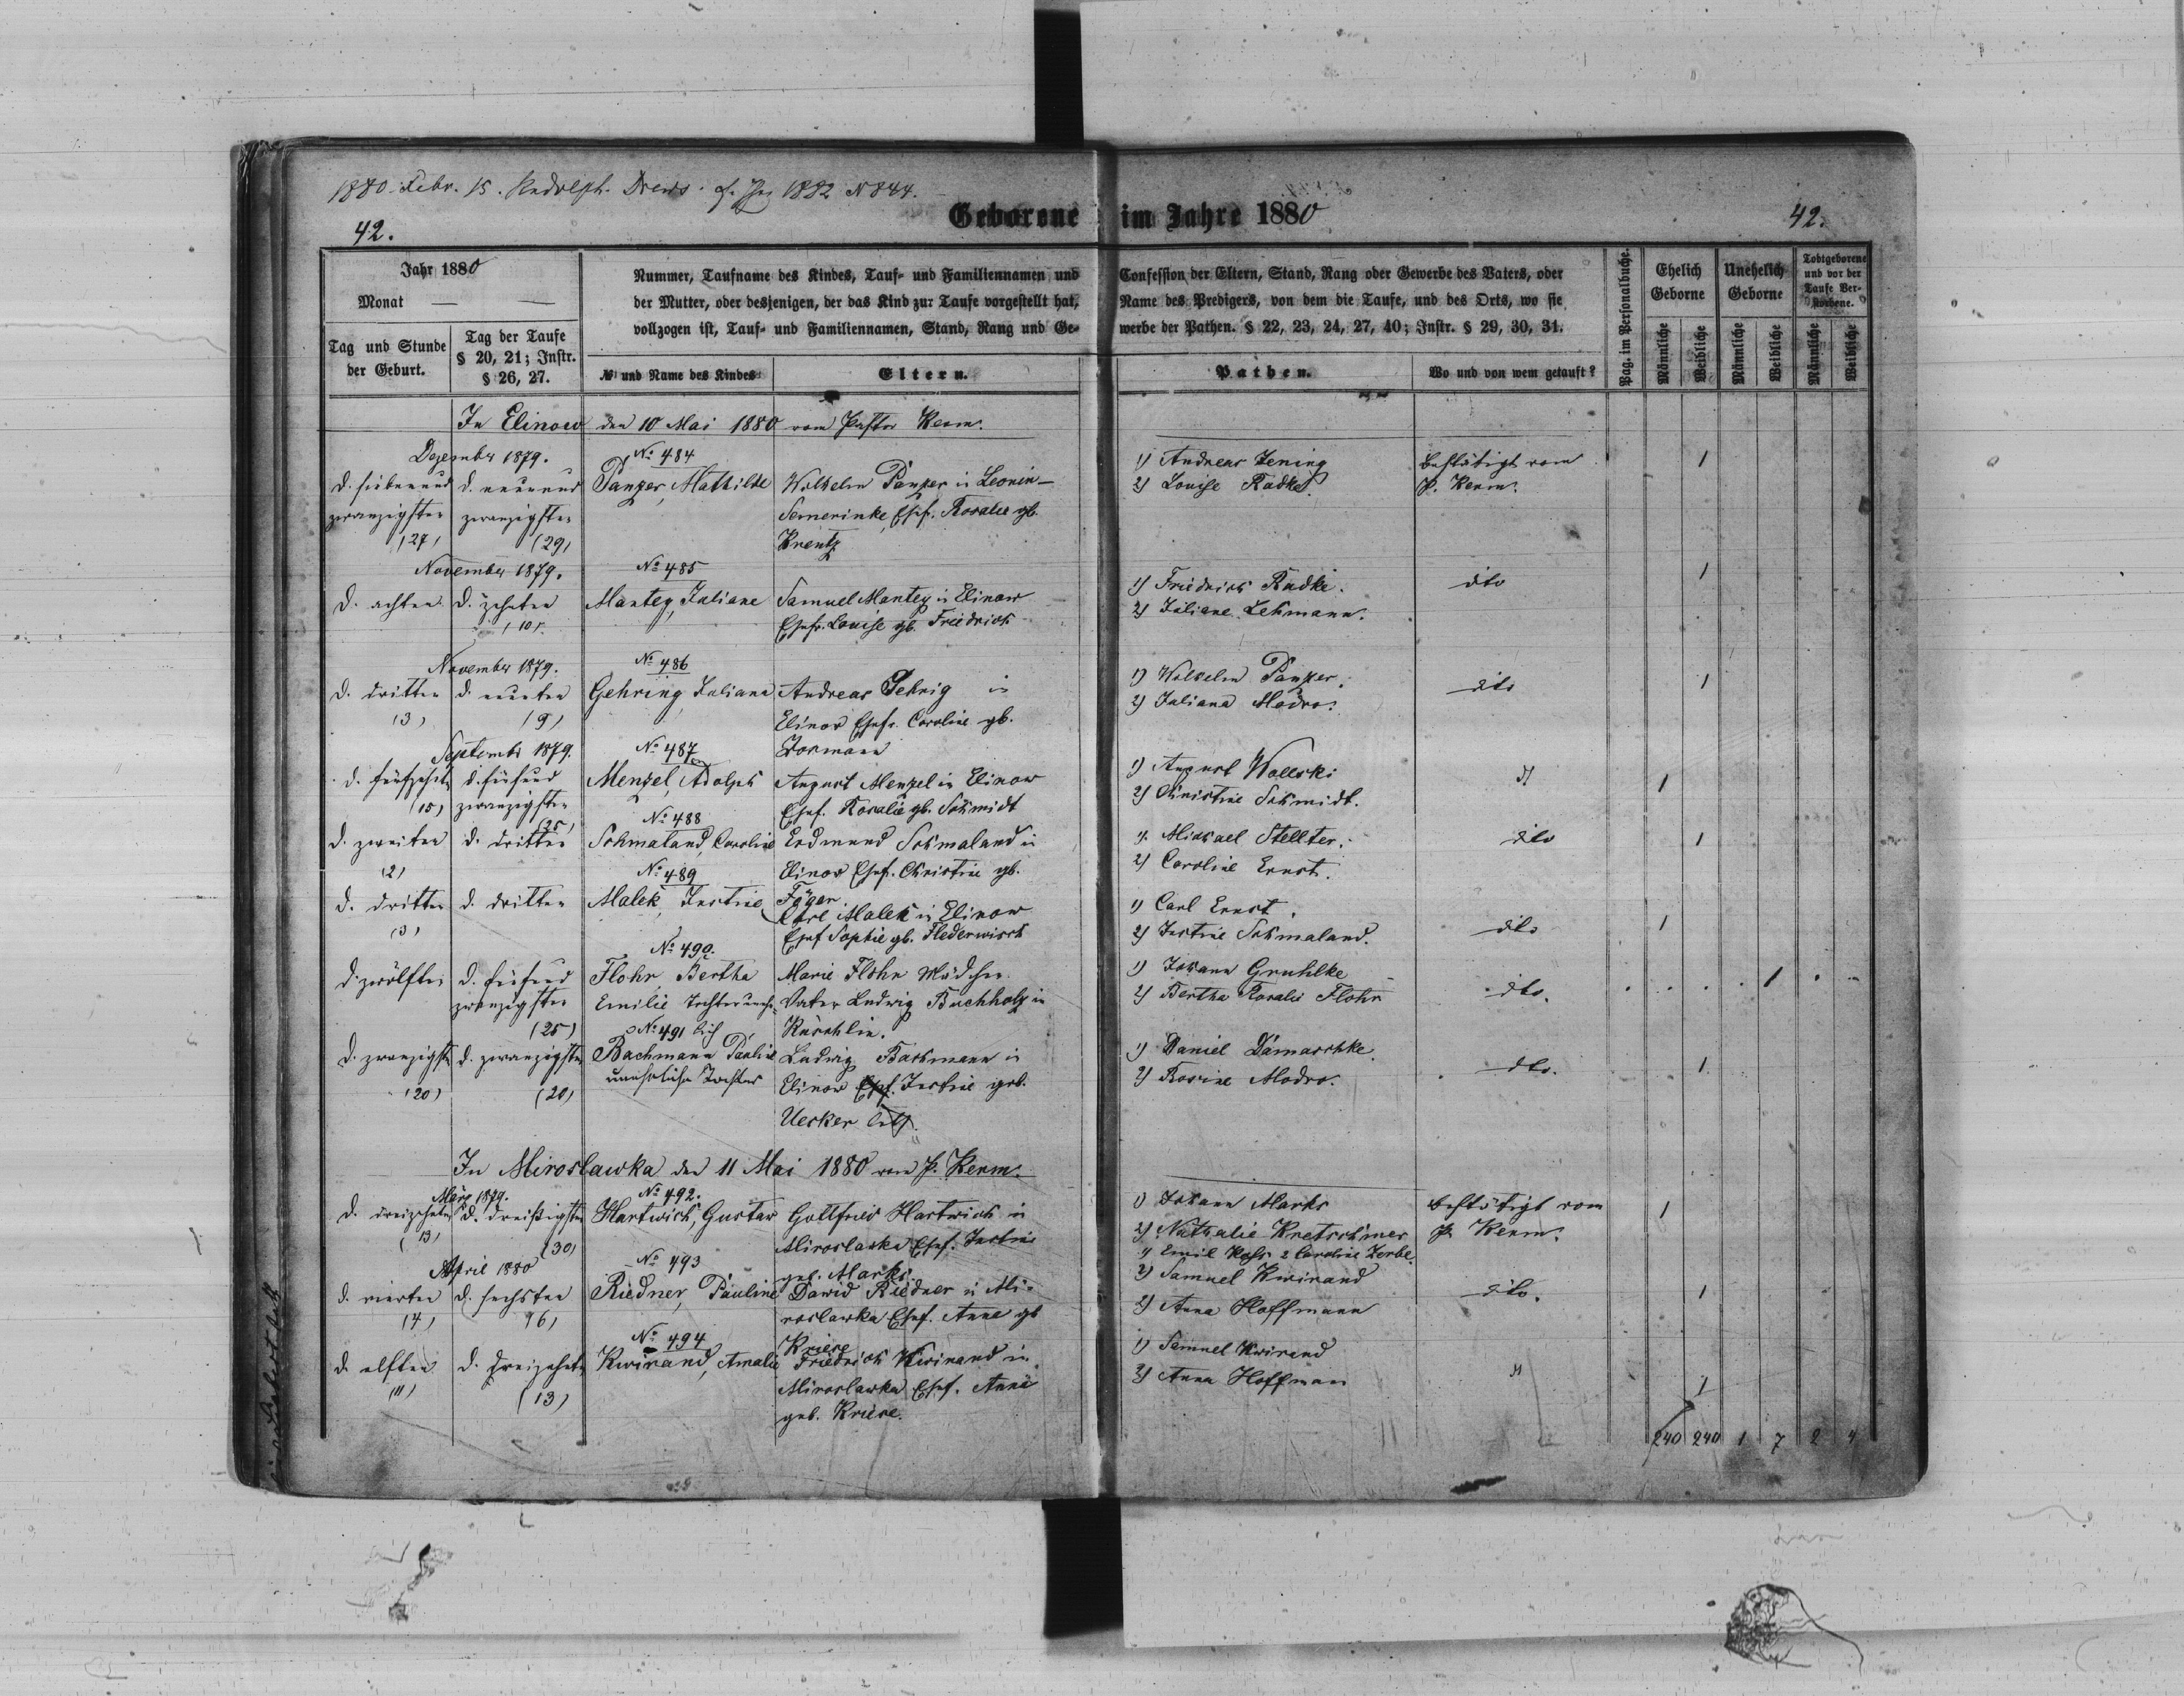 1880. Febr. 15. Rudolph. Drews. 1882 N 844.
Geborene im Jahre 1880
42.
42.
Jahr 1880
Monat
Tag und Stunde der Geburt.
Tag der Taufe
§ 20, 21; Instr.
§ 26, 27.
Nummer, Taufname des Kindes, Tauf- und Familiennamen und
der Mutter, oder desjenigen, der das Kind zur Taufe vorgestellt hat,
vollzogen ist, Tauf- und Familiennamen, Stand, Rang und Ge-
№ und Name des Kindes
Eltern.
Confession der Eltern, Stand, Rang oder Gewerbe des Vaters, oder
Name des Predigers, von dem die Taufe, und des Orts, wo sie
werbe der Pathen. § 22, 23, 24, 27, 40; Instr. § 29, 30, 31.
Pathen.
Wo und von wem getauft?
Pag. im Personalbuche.
Ehelich Geborne
Unehelich Geborne
Todtgeborene und vor der Taufe Ver-storbene.
Männliche
Weibliche
Männliche
Weibliche
Männliche
Weibliche
In Elinow den 10 Mai 1880 vom Pastor Kerm.
Dezember 1879.
№ 484
d. siebenund
zwanzigsten
(27)
d. neunund
zwanzigsten
(29)
Panzer, Mathilde
Wilhelm Panzer in Leonin-
Semerinke, Ehef. Rosalie gb.
Krentz
1) Andreas Jening
2) Louise Radke.
bestätigt vom
P. Kerm.
1
November 1879.
№ 485
d. achten
d. zehnten
(10).
Mantey, Juliane
Samuel Mantey in Elinow
Ehefr. Louise gb. Friedrich
1) Friedrich Radke.
2) Juliane Lehmann.
dito
1
November 1879.
№ 486
d. dritten
(3)
d. neunten
(9)
Gehring Juliana
Andreas Gehrig in
Elinow Ehefr. Caroline gb.
1) Wilhelm Panzer.
2) Juliana Modro.
dito
1
Septembr 1879.
№ 487
d. fünfzehnten
(15)
d. fünfund
zwanzigsten
(25)
Menzel, Adolph
August Menzel in Elinow
Ehef. Rosalie gb. Schmidt
1) August Wolleski
2) Christine Schmidt.
1
№ 488
d. zweiten
(2)
d. dritten
Schmaland, Caroline
Erdmund Schmaland in
Elinow Ehef. Christine gb.
1) Michael Stellter.
2) Caroline Ernst.
dito
1
№ 489
d. dritten
(3)
d. dritten
Malek, Justine
Carl Malek in Elinow
Ehef Sophie gb. Flederwisch
1) Carl Ernst.
2) Justine Schmaland.
dito
1
№ 490
d. zwölften
d. fünfund
zwanzigsten
(25)
Flohr, Bertha
Emilie
Marie Flohr Mädchen.
Vater Ludwig Buchholz in
1) Johann Gruhlke
2) Bertha Rosalie Flohr
dto.
1
№ 491
d. zwanzigsten
(20)
d. zwanzigsten
(20)
Bachmann Pauline
uneheliche Tochter
Ludwig Bachmann in
Elinow Ehef. Justine geb.
Uesker
1) Daniel Damaschke.
2) Rosine Modro.
dto.
1
In Miroslawka den 11 Mai 1880 vom P. Kerm.
März 1879.
№ 492.
d. dreizehnten
(13)
d. dreißigsten
(30)
Hartwich, Gustav
Gottfried Hartwich in
Miroslaska Ehef. Justine
geb. Marks.
1) Johann Marks
2) Nathalie Kretschmer
1) Emil Kass 2 Caroline Zerbe.
bestätigt vom
P. Kerm.
1
April 1880
№ 493
d. vierten
(4)
d. sechsten
(6)
Riedner, Pauline
Dawid Riedner in Mi-
roslawka Ehef. Anna gb
Kriese
2) Samuel Kwirand
2) Anna Hoffmann
dto.
1
№ 494
d. elften
(11)
d. dreizehnten
(13)
Kwirand, Amalie
Friedrich Kwirand in
Miroslawka Ehef. Anna
geb. Kriese.
1) Samuel Kwirand
2) Anna Hoffman
1
240 240 1 7 2 4